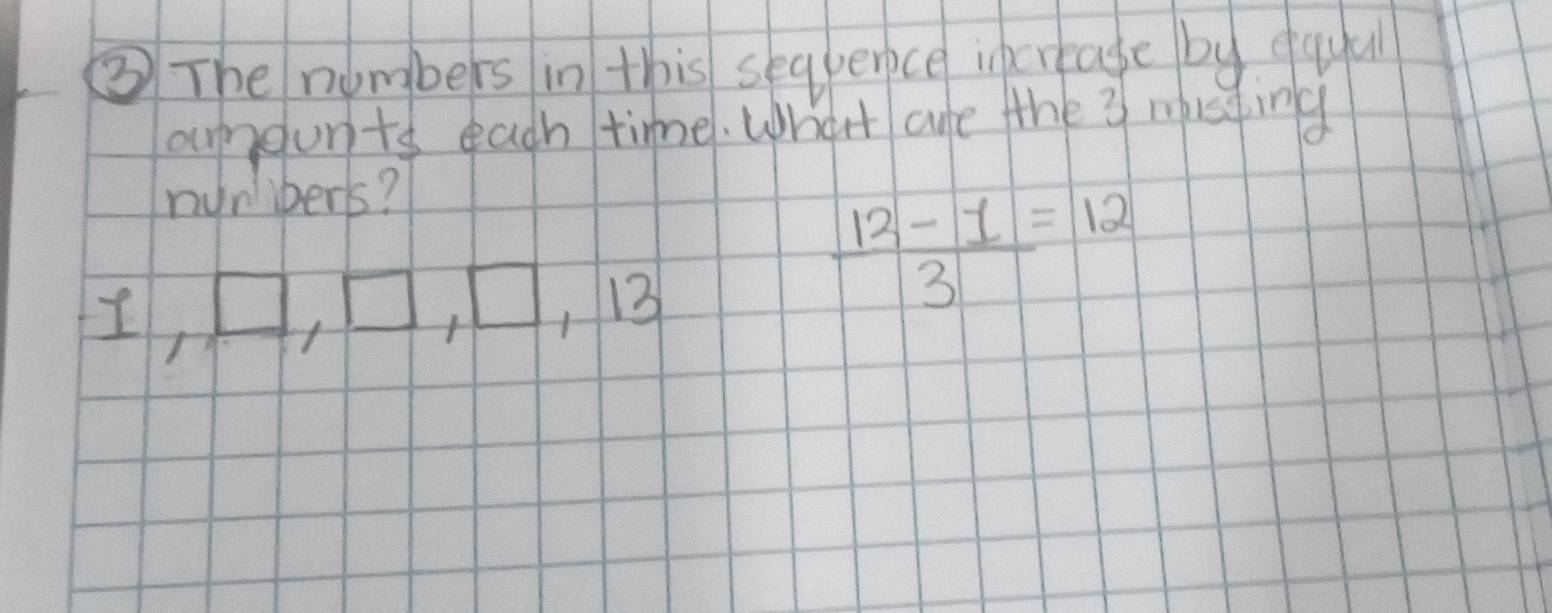 ③ The numbers in this sequence increase by equal
amounts each time. What are the 3 missing
numbers?
1, □, □, □, 13
13 - 1 = 12
3